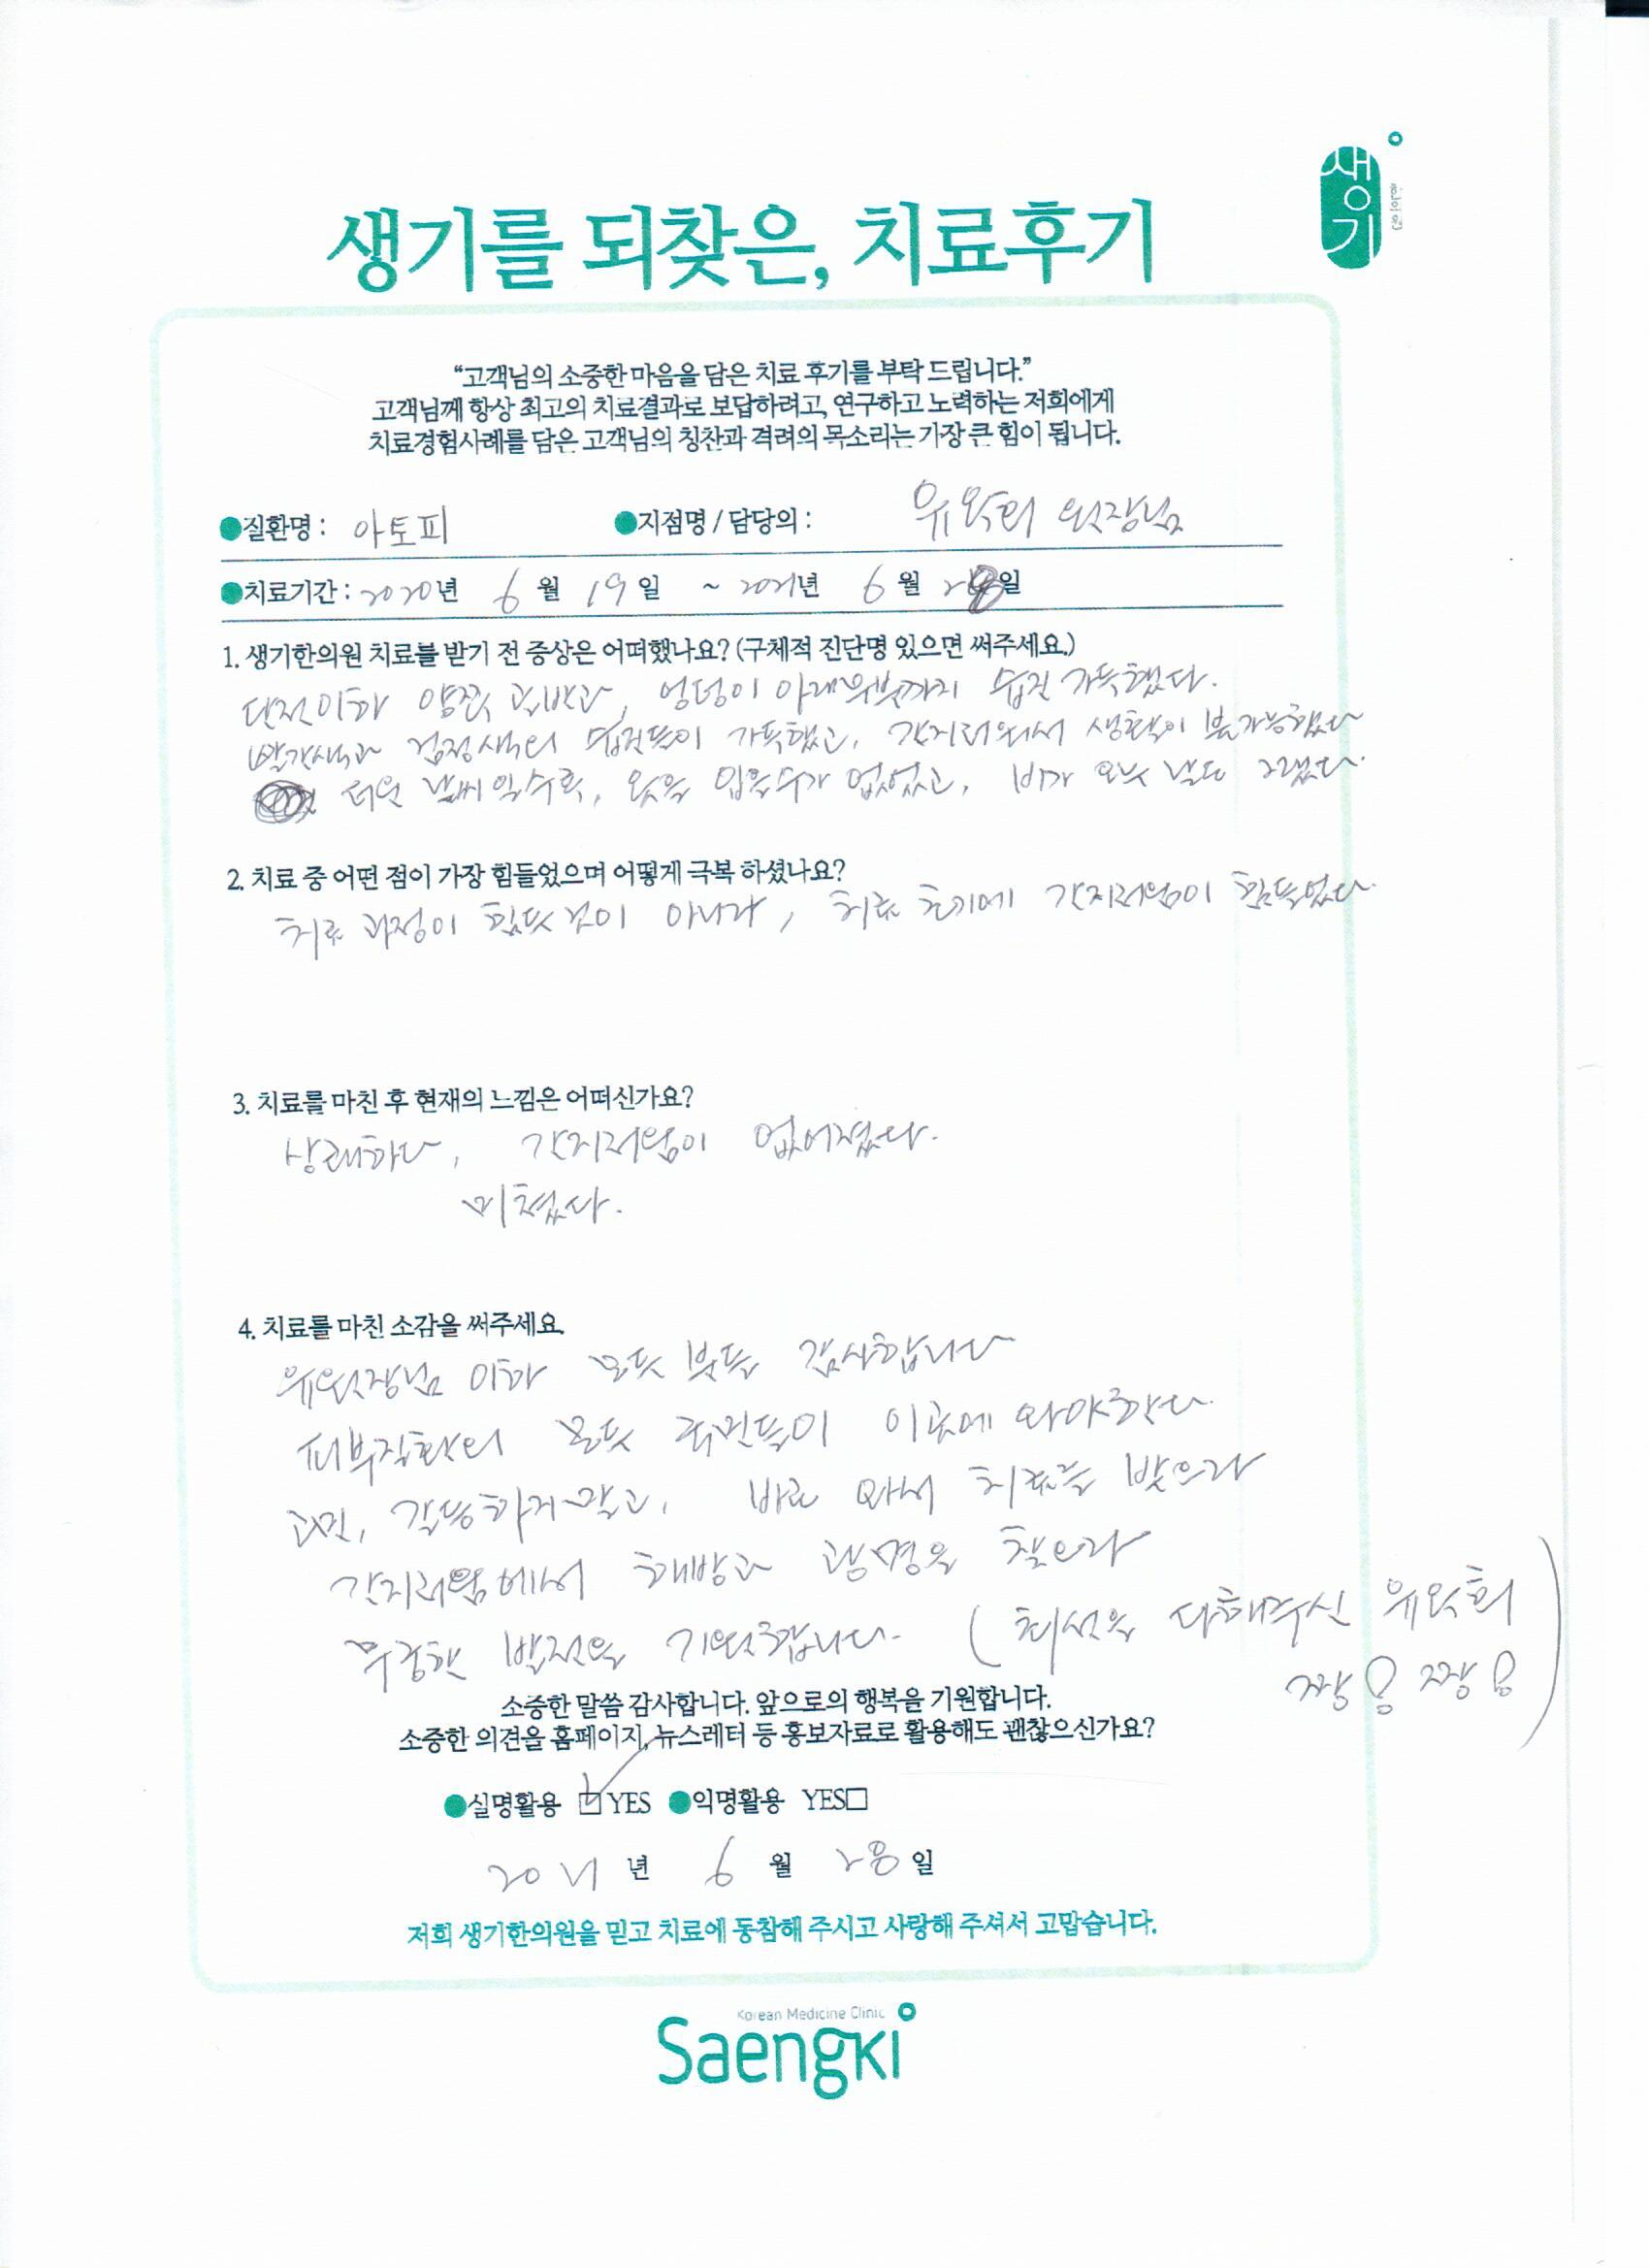 생기
한의원
생기를 되찾은, 치료후기
“고객님의 소중한 마음을 담은 치료 후기를 부탁 드립니다.”
고객님께 항상 최고의 치료결과로 보답하려고, 연구하고 노력하는 저희에게
치료경험사례를 담은 고객님의 칭찬과 격려의 목소리는 가장 큰 힘이 됩니다.
●질환명 : 아토피 ●지점명 / 담당의 : 유옥희 원장님
●치료기간 : 2020년 6월 19일 ~ 2021년 6월 28일
1. 생기한의원 치료를 받기 전 증상은 어떠했나요? (구체적 진단명 있으면 써주세요.)
단전이하 양쪽 골반과, 엉덩이 아래부분까지 습진 가득했다.
빨간색과 검정색의 습진들이 가득했고, 간지러워서 생활이 불가능했다
더운 날씨일수록, 옷을 입을수가 없었고, 비가 오는 날도 그랬다.
2. 치료 중 어떤 점이 가장 힘들었으며 어떻게 극복 하셨나요?
치료 과정이 힘든 것이 아니라, 치료 초기에 간지러움이 힘들었다.
3. 치료를 마친 후 현재의 느낌은 어떠신가요?
상쾌하다, 간지러움이 없어졌다.
미쳤다.
4. 치료를 마친 소감을 써주세요.
유원장님 이하 모든 분들 감사합니다
피부질환의 모든 국민들이 이곳에 와야한다.
고민, 갈등하지말고, 바로 와서 치료를 받으라
간지러움에서 해방과 광명을 찾으라
무궁한 발전을 기원합니다. (최선을 다해주신 유옥희
짱용 짱용)
소중한 말씀 감사합니다. 앞으로의 행복을 기원합니다.
소중한 의견을 홈페이지, 뉴스레터 등 홍보자료로 활용해도 괜찮으신가요?
●실명활용 ☑YES ●익명활용 YES□
2021년 6월 28일
저희 생기한의원을 믿고 치료에 동참해 주시고 사랑해 주셔서 고맙습니다.
Korean Medicine Clinic
Saengki